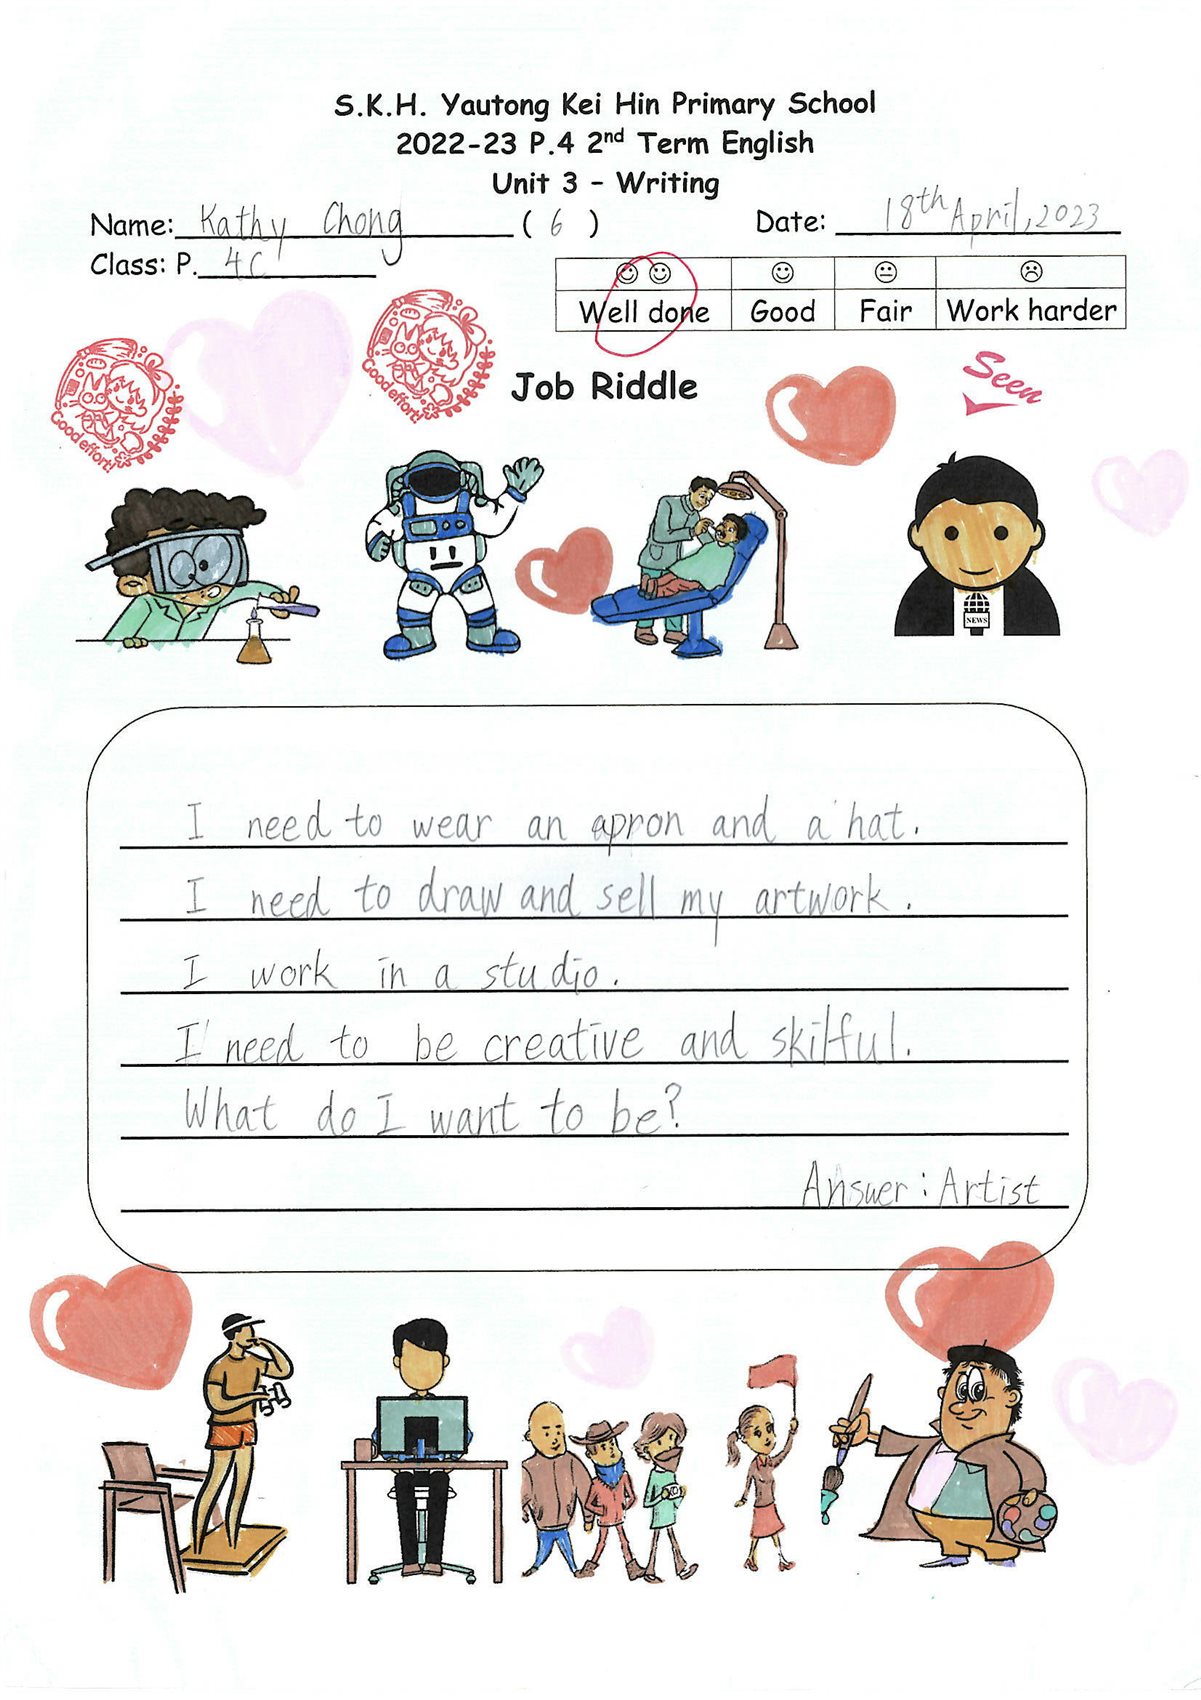 S.K.H. Yautong Kei Hin Primary School
2022-23 P.4 2nd Term English
Unit 3 - Writing
Name: Kathy Chong ( 6 ) Date: 18th April, 2023
Class: P. 4C
Well done Good Fair Work harder
Good effort!
Good effort!
Job Riddle
Seen
NEWS
I need to wear an apron and a hat.
I need to draw and sell my artwork.
I work in a studio.
I need to be creative and skilful.
What do I want to be?
Answer: Artist